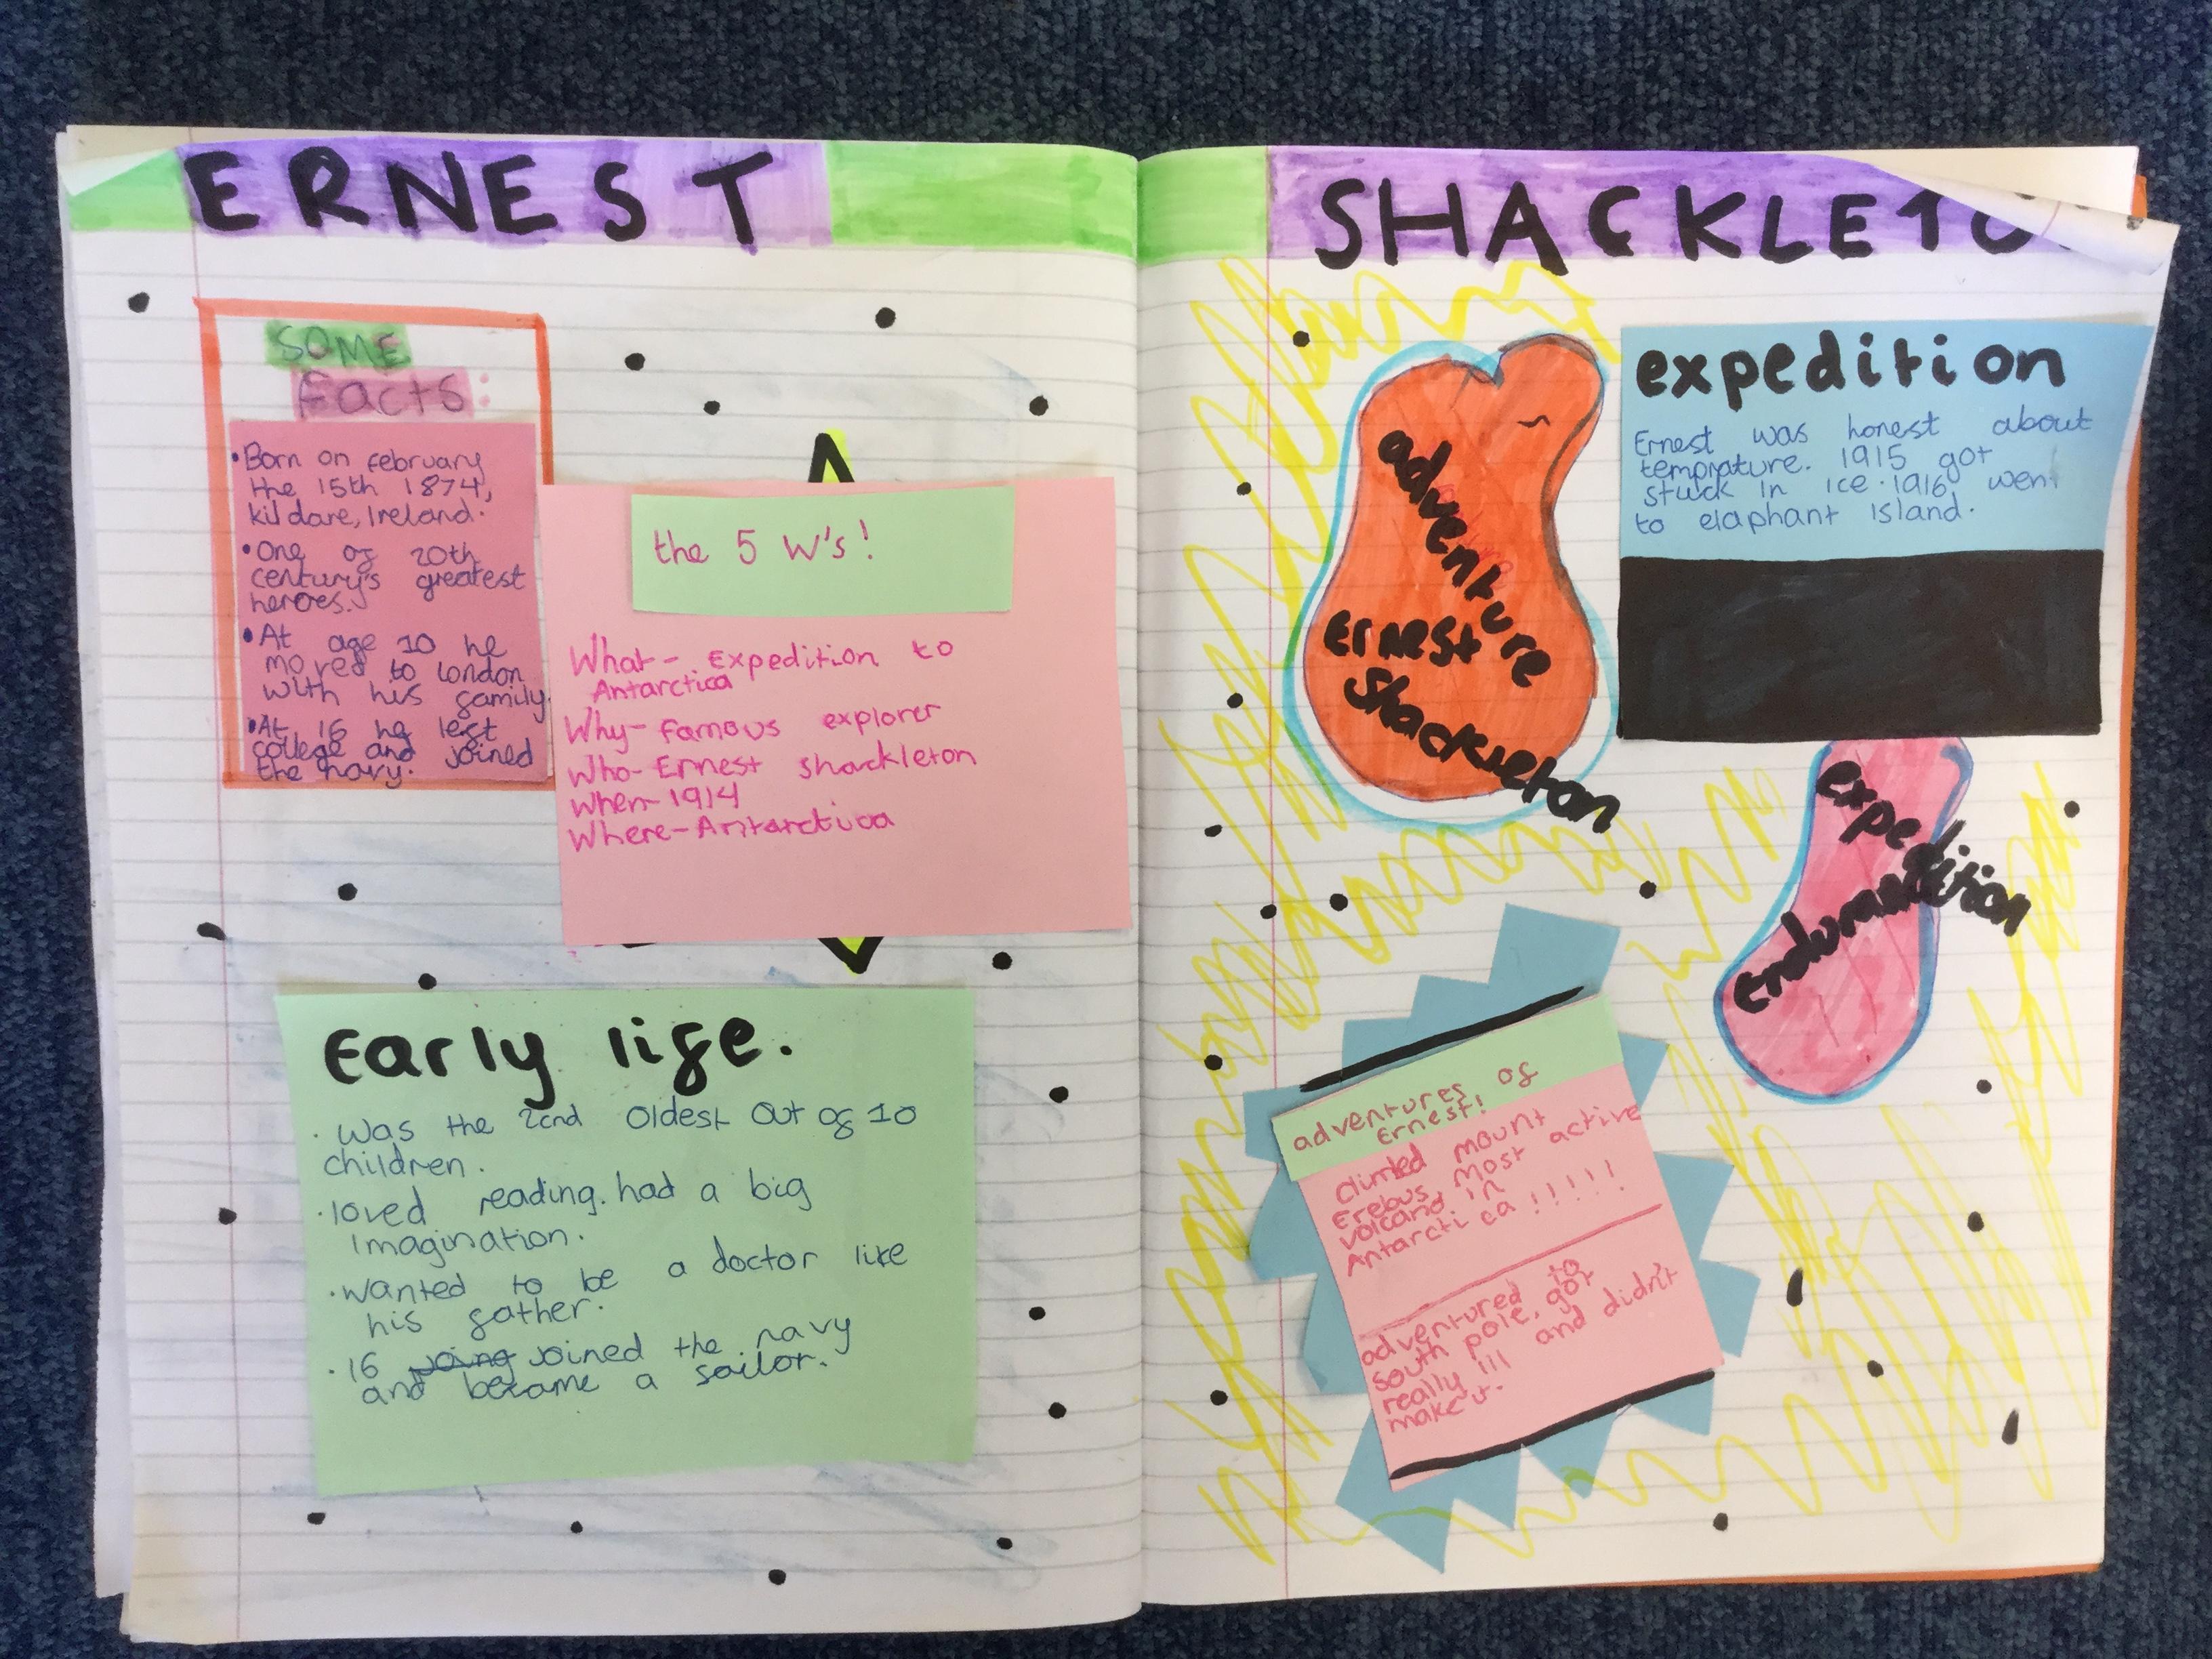 ERNEST
SOME
facts:
• Born on february
the 15th 1874,
kildare, Ireland.
• One of 20th
century's greatest
heroes.
• At age 10 he
moved to london
with his family.
• At 16 he left
college and joined
the navy.
the 5 W's!
What - Expedition to
Antarctica
Why - famous explorer
Who - Ernest shackleton
When - 1914
Where - Antarctica
Early life.
· Was the 2cnd Oldest Out of 10
children.
· loved reading. had a big
Imagination.
· wanted to be a doctor like
his father.
· 16 joined the navy
and became a sailor.
SHACKLETO
adventure
Ernest
Shackleton
expedition
Ernest was honest about
temprature. 1915 got
stuck in ice. 1916 went
to elaphant Island.
expedition
endurance
adventures of
Ernest!
Climbed mount
Erebus most active
volcano in
Antarctica !!!!!
adventured to
south pole, got
really ill and didn't
make it.